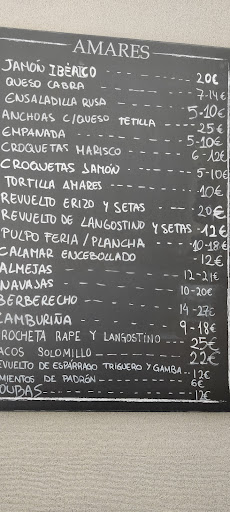 AMARES
JAMÓN IBÉRICO - - - - - - - - 20€
QUESO CABRA - - - - - - - - 7-14€
ENSALADILLA RUSA - - - - - - 5-10€
ANCHOAS C/QUESO TETILLA - - 25€
EMPANADA - - - - - - - - 5-10€
CROQUETAS MARISCO - - - - 6-12€
CROQUETAS JAMÓN - - - - - 5-10€
TORTILLA AMARES - - - - - - 10€
REVUELTO ERIZO Y SETAS - - - 20€
REVUELTO DE LANGOSTINO Y SETAS - 12€
PULPO FERIA/PLANCHA - - - 10-18€
CALAMAR ENCEBOLLADO - - - - 12€
ALMEJAS - - - - - - - - 12-21€
NAVAJAS - - - - - - - - 10-20€
BERBERECHO - - - - - - - 14-27€
ZAMBURIÑA - - - - - - - 9-18€
BROCHETA RAPE Y LANGOSTINO - - - 25€
TACOS SOLOMILLO - - - - - - - 22€
REVUELTO DE ESPÁRRAGO TRIGUERO Y GAMBA - - 12€
PIMIENTOS DE PADRÓN - - - - - - 6€
XOUBAS - - - - - - - - 12€